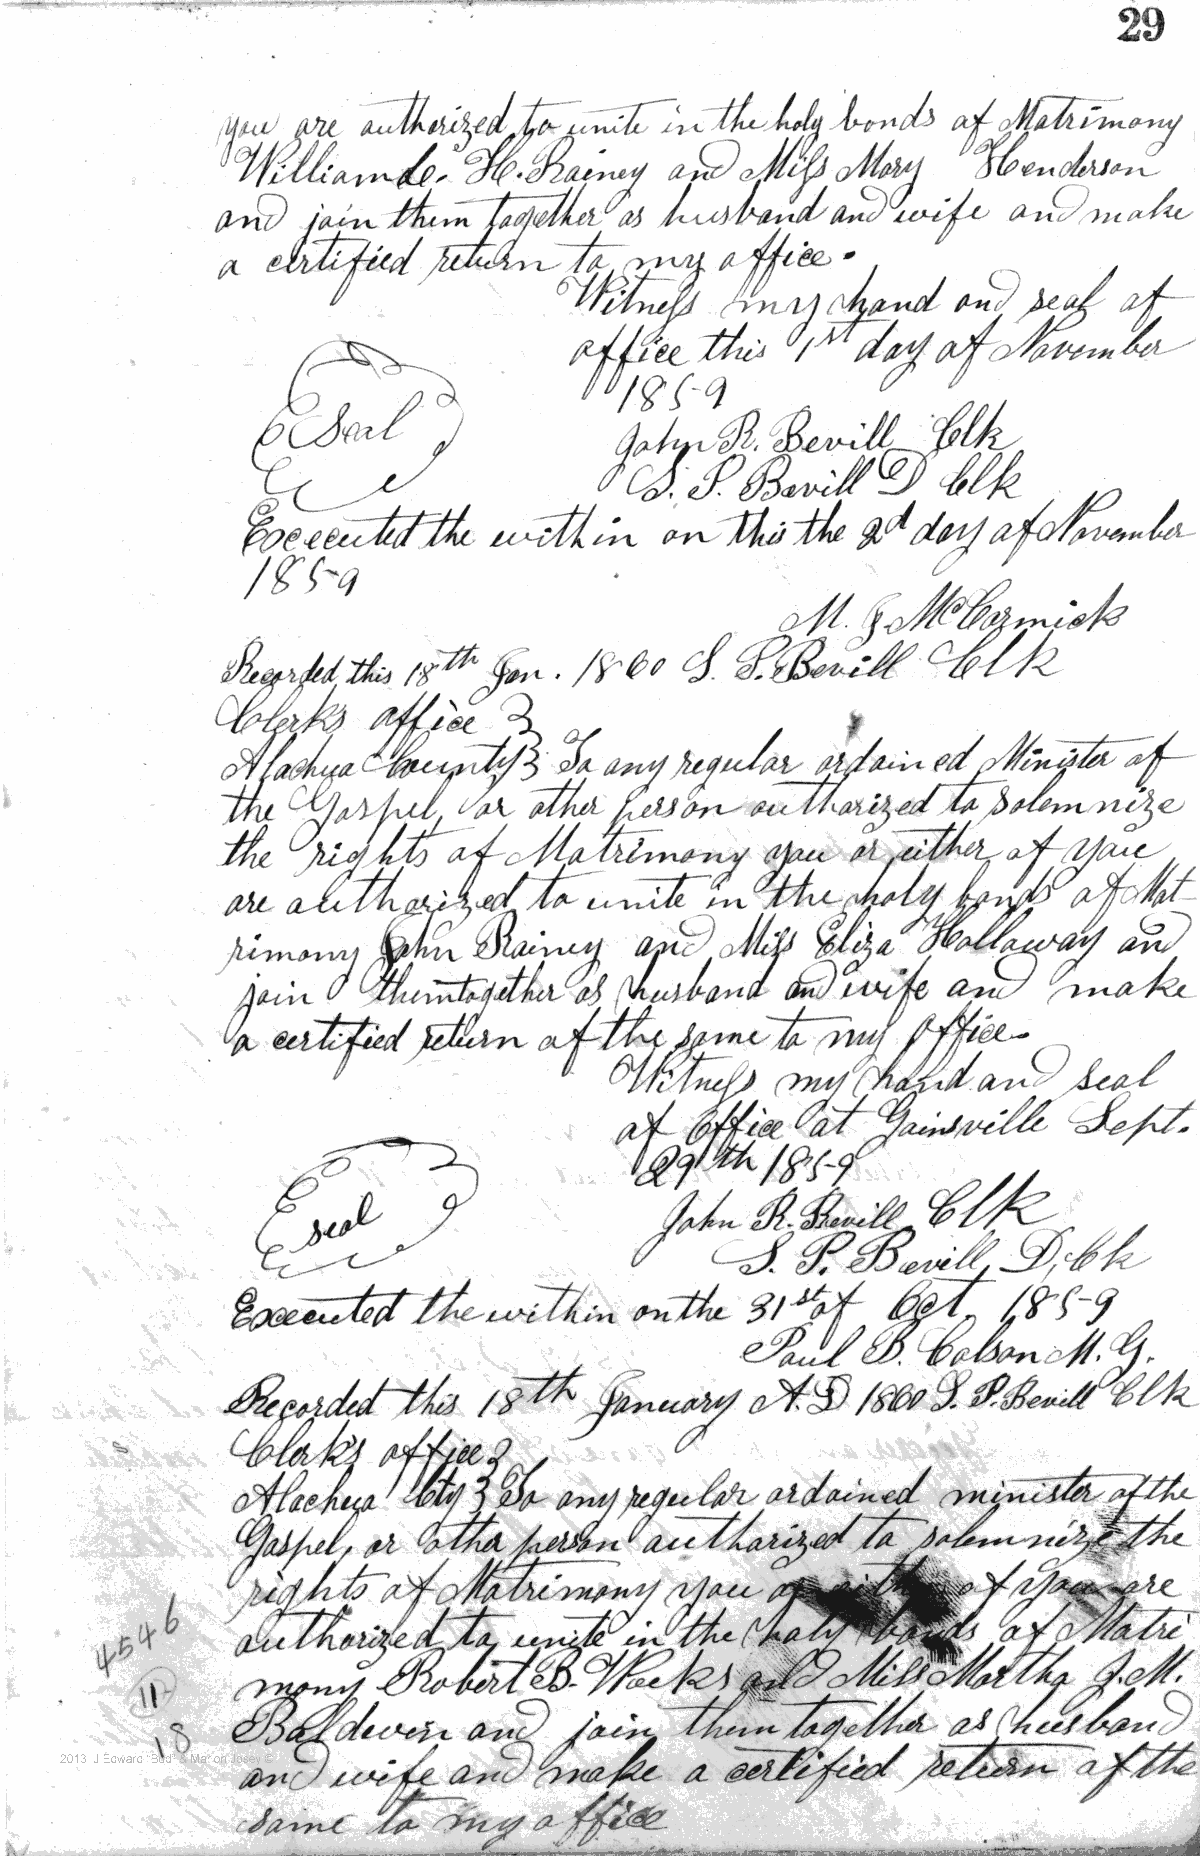 29
you are authorized to unite in the holy bonds of Matrimony
William H. Rainey and Miss Mary Henderson
and join them together as husband and wife and make
a certified return to my office.
Witness my hand and seal of
office this 1st day of November
1859
Seal
John R. Bevill Clk
S. P. Bevill D Clk
Excecuted the within on this the 2d day of November
1859
M. J. McCormick
Recorded this 18th Jan. 1860 S. P. Bevill Clk
Clerks office }
Alachua County } To any regular ordained Minister of
the Gospel, or other person authorized to solemnize
the rights of Matrimony you or either of you
are authorized to unite in the holy bonds of Mat-
rimony John Rainey and Miss Eliza Hollaway and
join them together as husband and wife and make
a certified return of the same to my office.
Witness my hand and seal
of Office at Gainsville Sept.
29th 1859
seal
John R. Bevill Clk
S. P. Bevill, D. Ck
Executed the within on the 31st of Oct. 1859
Paul B. Colson M. G.
Recorded this 18th January A. D 1860 S. P. Bevill Clk
Clerk's office }
Alachua Cty } To any regular ordained minister of the
Gospel, or other person authorized to solemnize the
rights of Matrimony you or either of you are
authorized to unite in the holy bonds of Matri
mony Robert B. Weeks and Miss Martha J. M.
Baldwin and join them together as husband
and wife and make a certified return of the
same to my office
4546
11
18
2013 J Edward "Bud" & Marion Josey ©